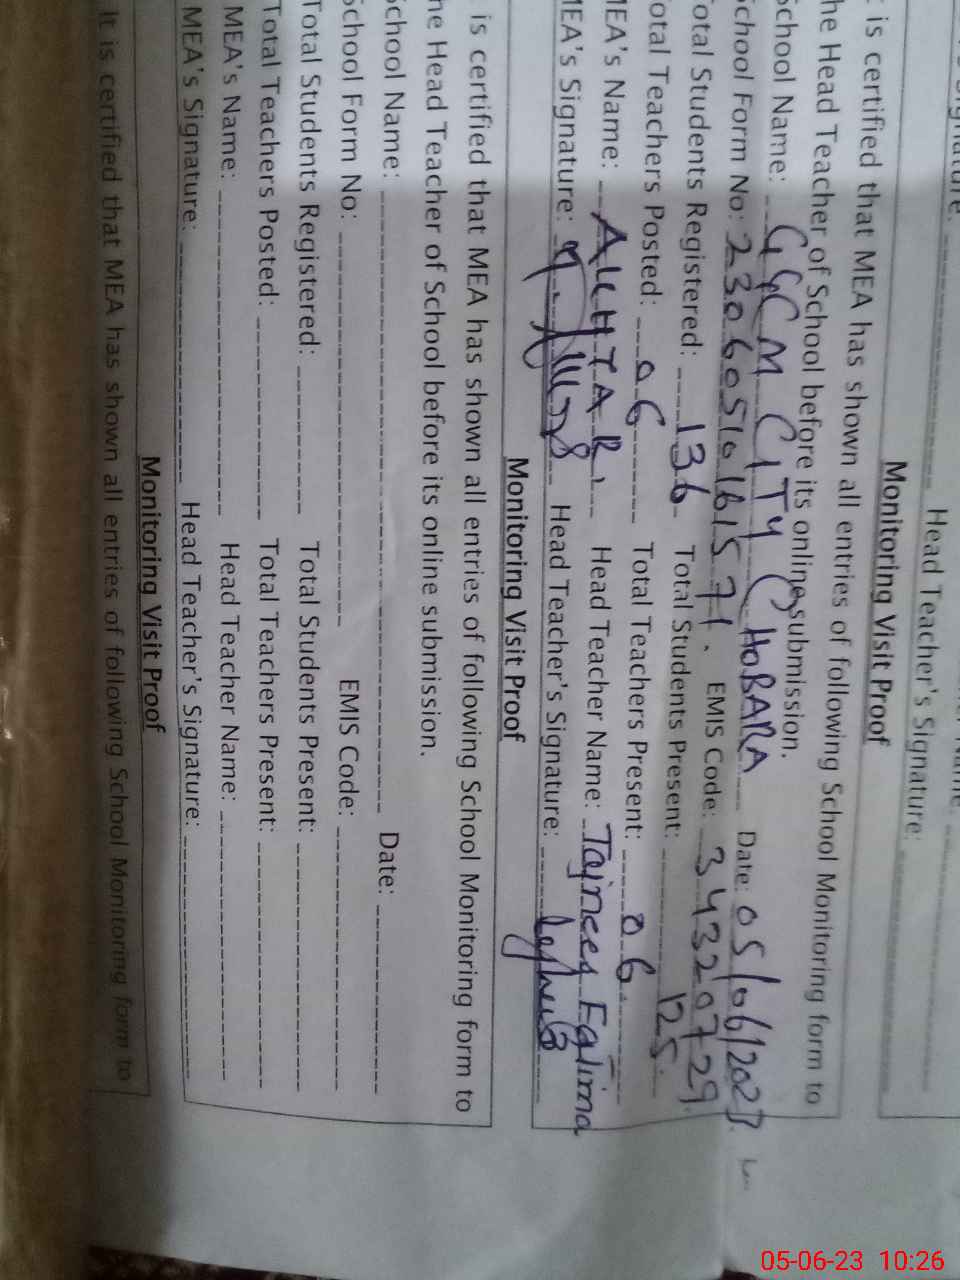 Head Teacher's Signature:
Monitoring Visit Proof
is certified that MEA has shown all entries of following School Monitoring form to
he Head Teacher of School before its online submission.
School Name: GGCM CITY CHOBARA Date: 05/06/2023
School Form No: 2306051016157 1. EMIS Code: 34320729
Total Students Registered: 136 Total Students Present: 125
Total Teachers Posted: 06 Total Teachers Present: 06
MEA's Name: AKHTAR Head Teacher Name: Tajnees Eglima
MEA's Signature: Head Teacher's Signature:
Monitoring Visit Proof
is certified that MEA has shown all entries of following School Monitoring form to
he Head Teacher of School before its online submission.
School Name: Date:
School Form No: EMIS Code:
Total Students Registered: Total Students Present:
Total Teachers Posted: Total Teachers Present:
MEA's Name: Head Teacher Name:
MEA's Signature: Head Teacher's Signature:
Monitoring Visit Proof
It is certified that MEA has shown all entries of following School Monitoring form to
05-06-23 10:26